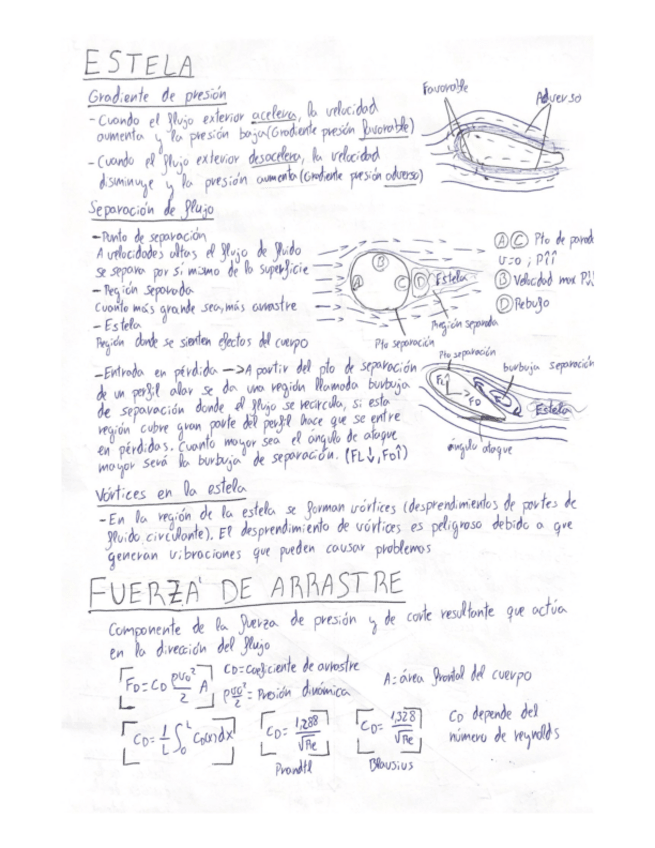 ESTELA
Gradiente de presión
-Cuando el flujo exterior acelera, la velocidad
aumenta y la presión baja (Gradiente presión favorable)
-Cuando el flujo exterior desacelera, la velocidad
disminuye y la presión aumenta (Gradiente presión adverso)
Favorable
Adverso
Separación de flujo
-Punto de separación
A velocidades altas el flujo de fluido
se separa por si mismo de la superficie
-Región separada
Cuanto más grande sea, más arrastre
-Estela
Región donde se sienten efectos del cuerpo
A
B
C
D
Estela
Región separada
Pto separación
A C Pto de parad
U=0 ; P↑↑
B Velocidad max P↓↓
D Rebufo
-Entrada en pérdida -> A partir del pto de separación
de un perfil alar se da una región llamada burbuja
de separación donde el flujo se recircula, si esta
región cubre gran parte del perfil hace que se entre
en pérdidas. Cuanto mayor sea el ángulo de ataque
mayor será la burbuja de separación. (FL↓, FD↑)
Pto separación
burbuja separación
FL
FD
Estela
ángulo ataque
Vórtices en la estela
-En la región de la estela se forman vórtices (desprendimientos de partes de
fluido circulante). El desprendimiento de vórtices es peligroso debido a que
generan vibraciones que pueden causar problemas
FUERZA DE ARRASTRE
Componente de la fuerza de presión y de corte resultante que actúa
en la dirección del flujo
FD = CD ρU₀²/2 A
CD = Coeficiente de arrastre
ρU₀²/2 = Presión dinámica
A = área frontal del cuerpo
CD = 1/L ∫₀ᴸ CD(x) dx
CD = 1,288/√Re
Prandtl
CD = 1,328/√Re
Blausius
CD depende del
número de reynolds